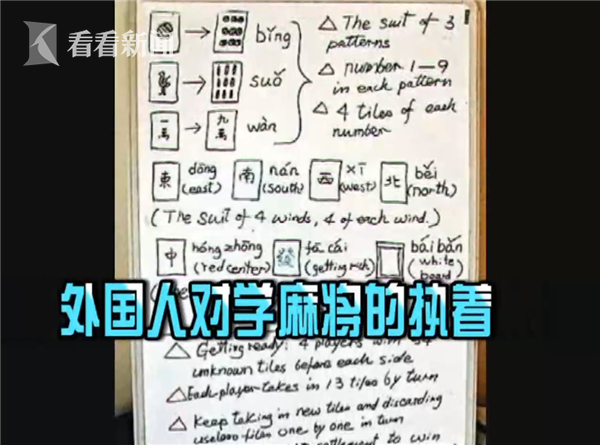 看看新闻
bǐng
suǒ
一萬 → 九萬 wàn
△ The suit of 3
patterns
△ number 1—9
in each pattern
△ 4 tiles of each
number
東 dōng (east) 南 nán (south) 西 xī (west) 北 běi (north)
(The suit of 4 winds, 4 of each wind.)
中 hóng zhōng (red center) 發 fā cái (getting rich) bái bǎn (white board
外国人对学麻将的执着
△ Getting ready: 4 players with
unknown tiles before each side
△ Each player takes in 13 tiles by turn
△ Keep taking in new tiles and discarding
useless tiles one by one in turn
settlement to win